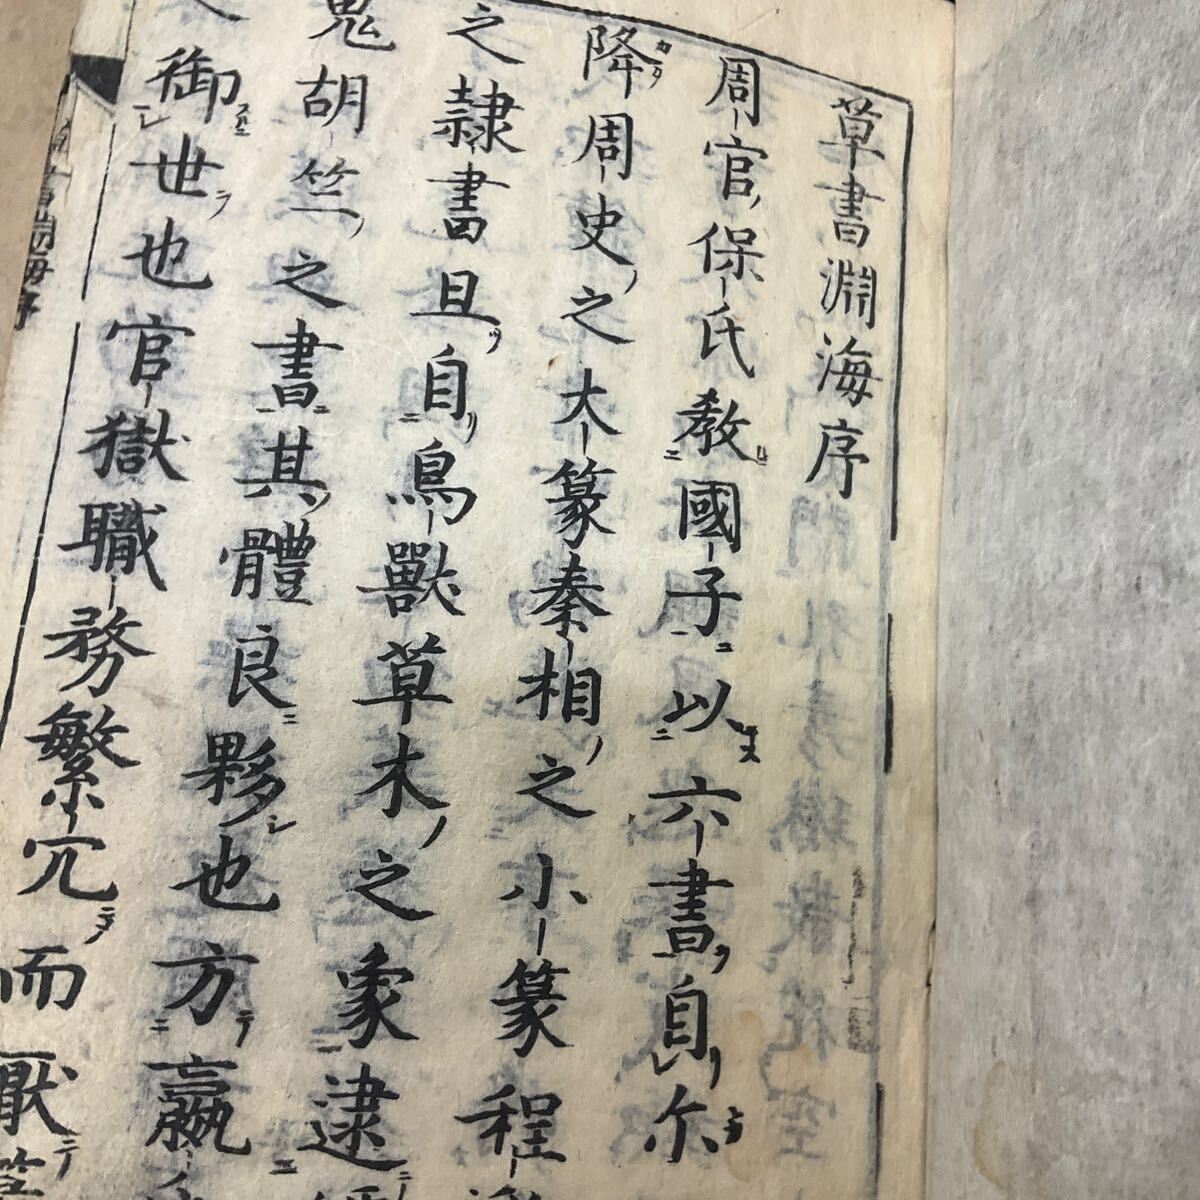 草書淵海序
周官保氏教國子以六書自尔
降周史之大篆秦相之小篆程
之隷書且自鳥獸草木之象逮
鬼胡竺之書其體良夥也方嬴
御世也官獄職務繁冗而厭